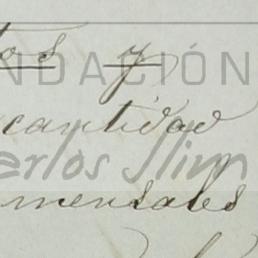 tos y
NDACIÓN
cantidad
arlos Slim
mensales